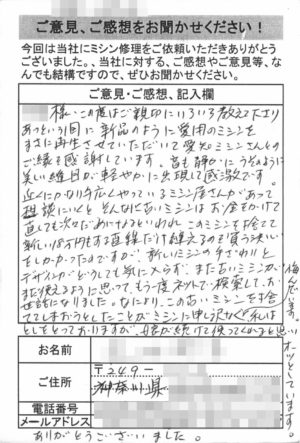 ご意見、ご感想をお聞かせください！
今回は当社にミシン修理をご依頼いただきありがとうございました。、当社に対する、ご感想やご意見等、なんでも結構ですので、ぜひお聞かせください。
ご意見・ご感想、記入欄
様、この度はご親切にいろいろ教えて下さり
あっという間に新品のように愛用のミシンを
まさに再生させていただいて愛知ミシンさんとの
ご縁を感謝しています。音も静かにうそのように
美しい縫目が軽やかに出現して感激です。
近くにかなり手広くやっているミシン屋さんがあって
相談にいくと そんなに古いミシンはお金をかけて
直しても次々だめになるといわれ このミシンを捨てて
新しい18万円もする直線だけ縫えるのを買う契約
をしかかったのですが、新しいミシンの手ざわりと
デザインがどうしても気に入らず、また古いミシンが
まだ使えるように思って、もう一度ネットで検索して、お
世話になりました。なにより、この古いミシンを捨
ててしまおうとしたことがミシンに申し訳なく 私は
としをとっておりますが、娘が続けて使ってくれると思い
悔んだ
ホーッとしています。
お名前
ご住所
〒249-
神奈川県
電話番号
メールアドレス
ありがとうございました。